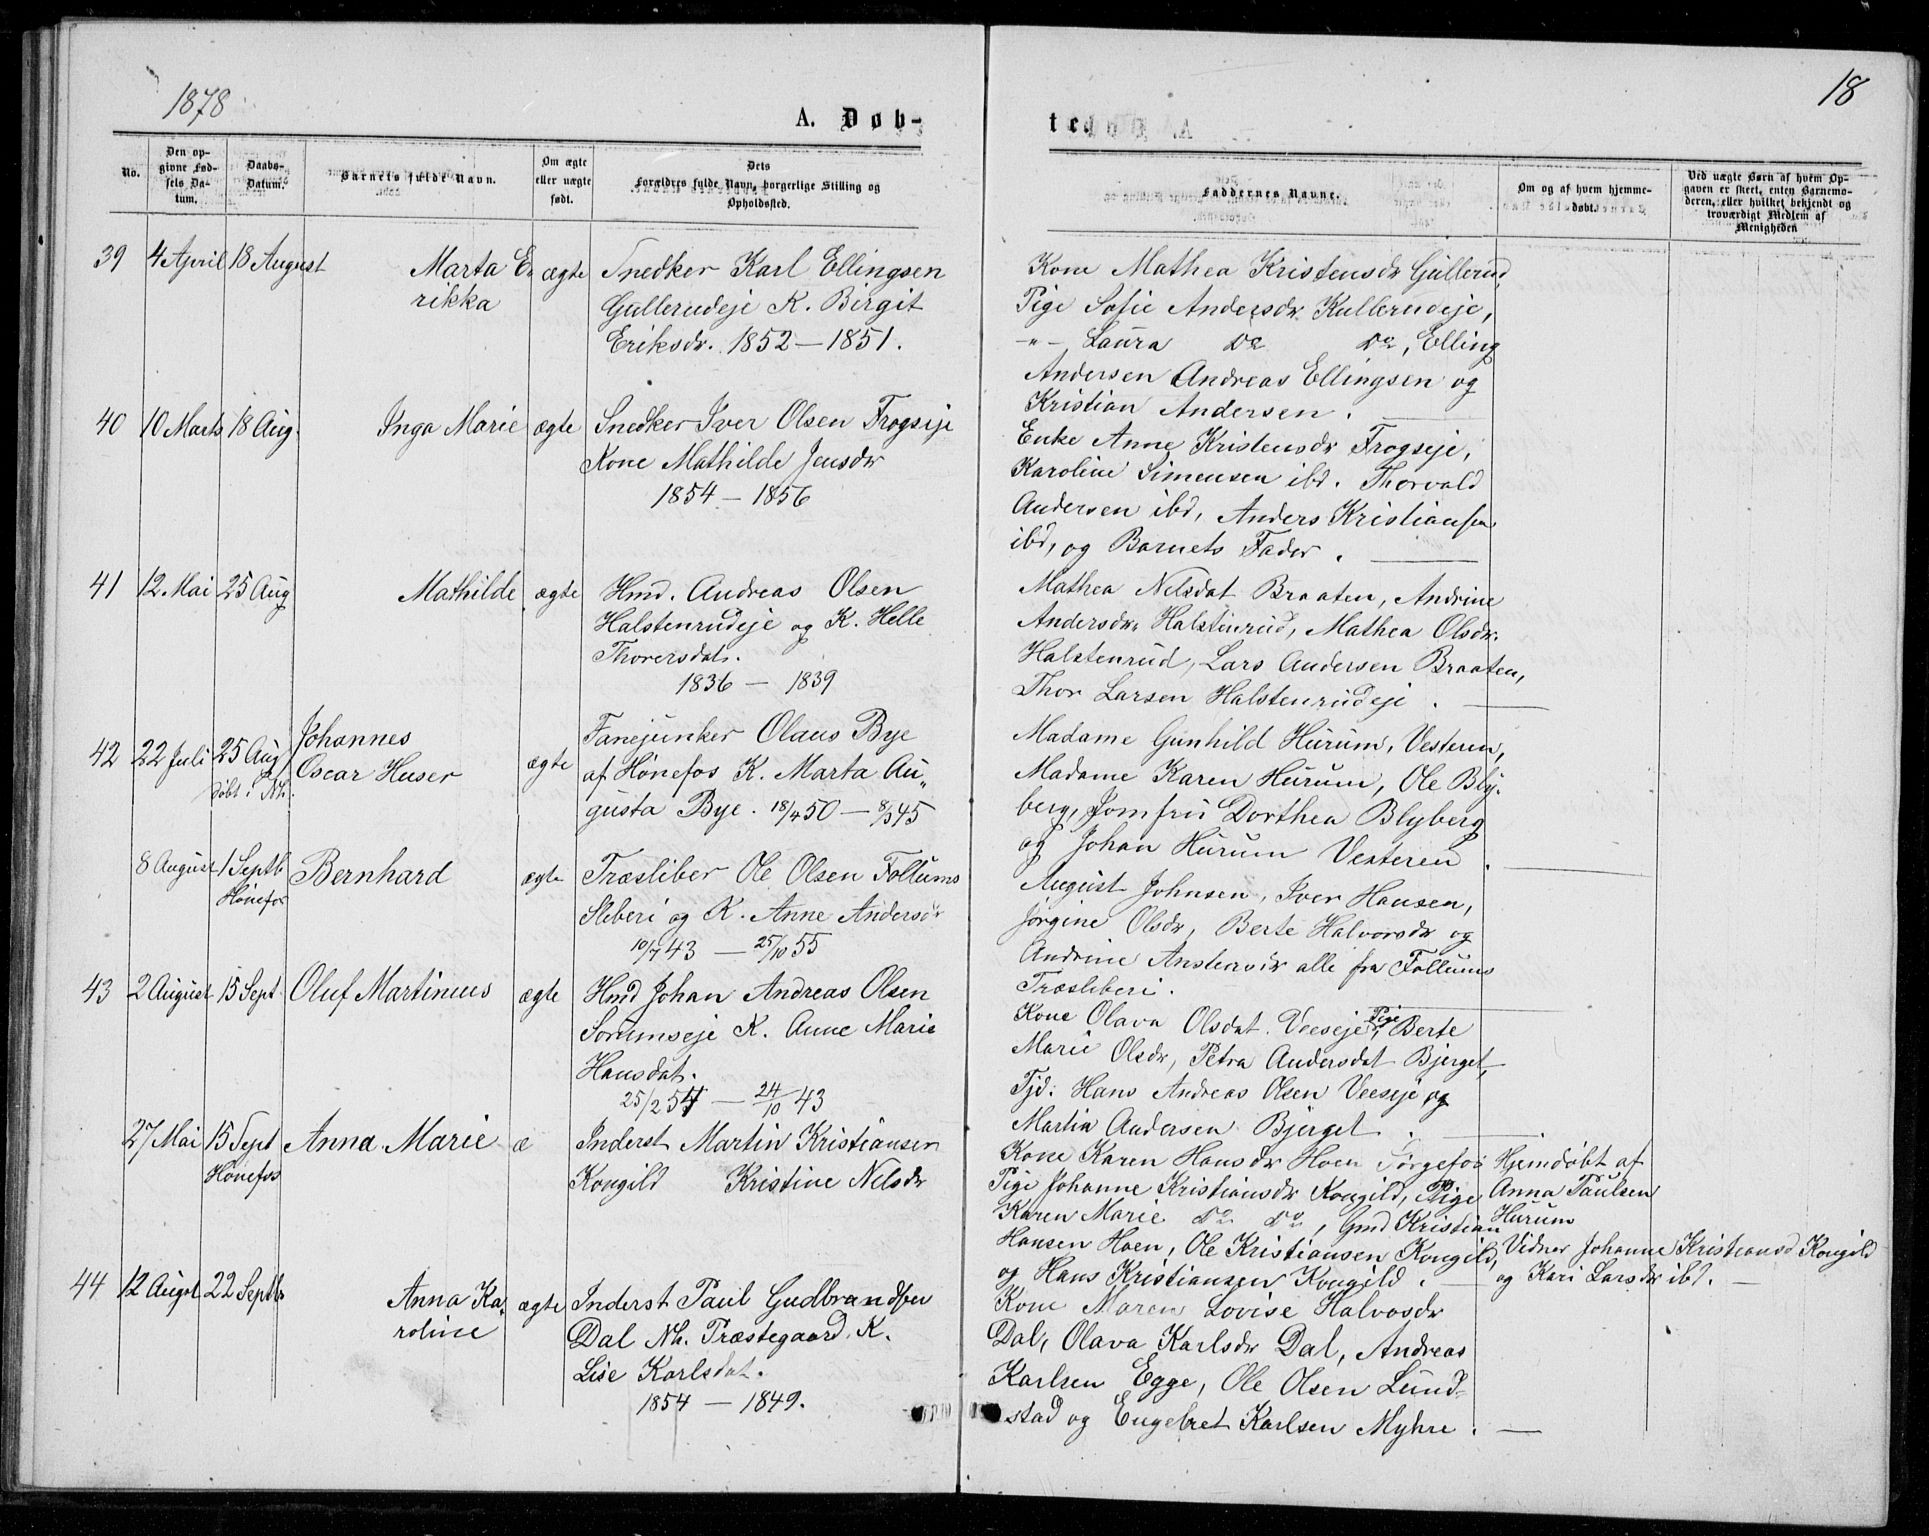 1878
A. Døb-
No.
Den op-
givne Fød-
sels Da-
tum.
Daabs-
Datum.
Barnets fulde Navn.
Om ægte
eller uægte
født.
Dets
Forældres fulde Navn, borgerlige Stilling og
Opholdssted.
39 4 April 18 August Marta E- ægte Snedker Karl Ellingsen
rikka Gullerudeje K. Birgit
Eriksdr. 1852 — 1851.
40 10 Marts 18 Aug. Inga Marie ægte Snedker Iver Olsen Frogseje
Kone Mathilde Jensdr
1854 — 1856
41 12 Mai 25 Aug Mathilde ægte Hmd. Andreas Olsen
Halstenrudeje og K. Helle
Thorersdat.
1836 — 1839
42 22 Juli 25 Aug Johannes ægte Fanejunker Olaus Bye
døbt i Nh. Oscar Huser af Hønefos K. Marta Au„
gusta Bye. 18/4 50 — 8/3 45
8 August 1 Septb Bernhard ægte Træsliber Ole Olsen Follums
Hønefos Sliberi og K. Anne Andersdr
10/7 43 — 25/10 55
43 2 August 15 Sept Oluf Martinius ægte Hmd Johan Andreas Olsen
Sorumseje K. Anne Marie
Hansdat.
25/2 54 — 24/10 43
27 Mai 15 Sept Anna Marie æ Inderst Martin Kristiansen
Hønefos Kongild Kristine Nelsdr
44 12 Augst 22 Septbr Anna Ka„ ægte Inderst Paul Gudbrandsen
roline Dal Nh. Præstegaard. K.
Lise Karlsdat.
1854 — 1849.
18
te.
Faddernes Navne.
Om og af hvem hjemme-
døbt.
Ved uægte Børn af hvem Op-
gaven er skeet, enten Barnemo-
deren, eller hvilket bekjendt og
troværdigt Medlem af
Menigheden
Kone Mathea Kristensdr Gullerud,
Pige Sofie Andersdr. Kullerudeje,
-"- Laura Do Do, Elling
Andersen Andreas Ellingsen og
Kristian Andersen.
Enke Anne Kristensdr Frogseje,
Karoline Simensen ibd. Thorvald
Andersen ibd, Anders Kristiansen
ibd, og Barnets Fader.
Mathea Nelsdat Braaten, Andrine
Andersdr. Halstenrud, Mathea Olsdr.
Halstenrud, Lars Andersen Braaten,
Thor Larsen Halstenrudeje.
Madame Gunhild Hurum, Vesteren,
Madame Karen Hurum, Ole Bly-
berg, Jomfru Dorthea Blyberg
og Johan Hurum Vesteren.
August Johnsen, Iver Hansen,
Jørgine Olsdr, Berte Halvorsdr og
Andrine Anstensdr alle fra Follums
Træsliberi.
Kone Olava Olsdat. Veeseje, Pige Berte
Marie Olsdr, Petra Andersdat Bjerget,
Tjd: Hans Andreas Olsen Veeseje og
Martin Andersen Bjerget.
Kone Karen Hansdr Hoen Jørgefos Hjemdøbt af
Pige Johanne Kristiansdr Kongild, Pige Anna Paulsen
Karen Marie Do Do, Gmd Kristian Hurum
Hansen Hoen, Ole Kristiansen Kongild, Vidner Johanne Kristiansd Kongild
og Hans Kristiansen Kongild. og Kari Larsdr ibd.
Kone Maren Lovise Halvosdr
Dal, Olava Karlsdr Dal, Andreas
Karlsen Egge, Ole Olsen Lund-
stad og Engebret Karlsen Myhre.